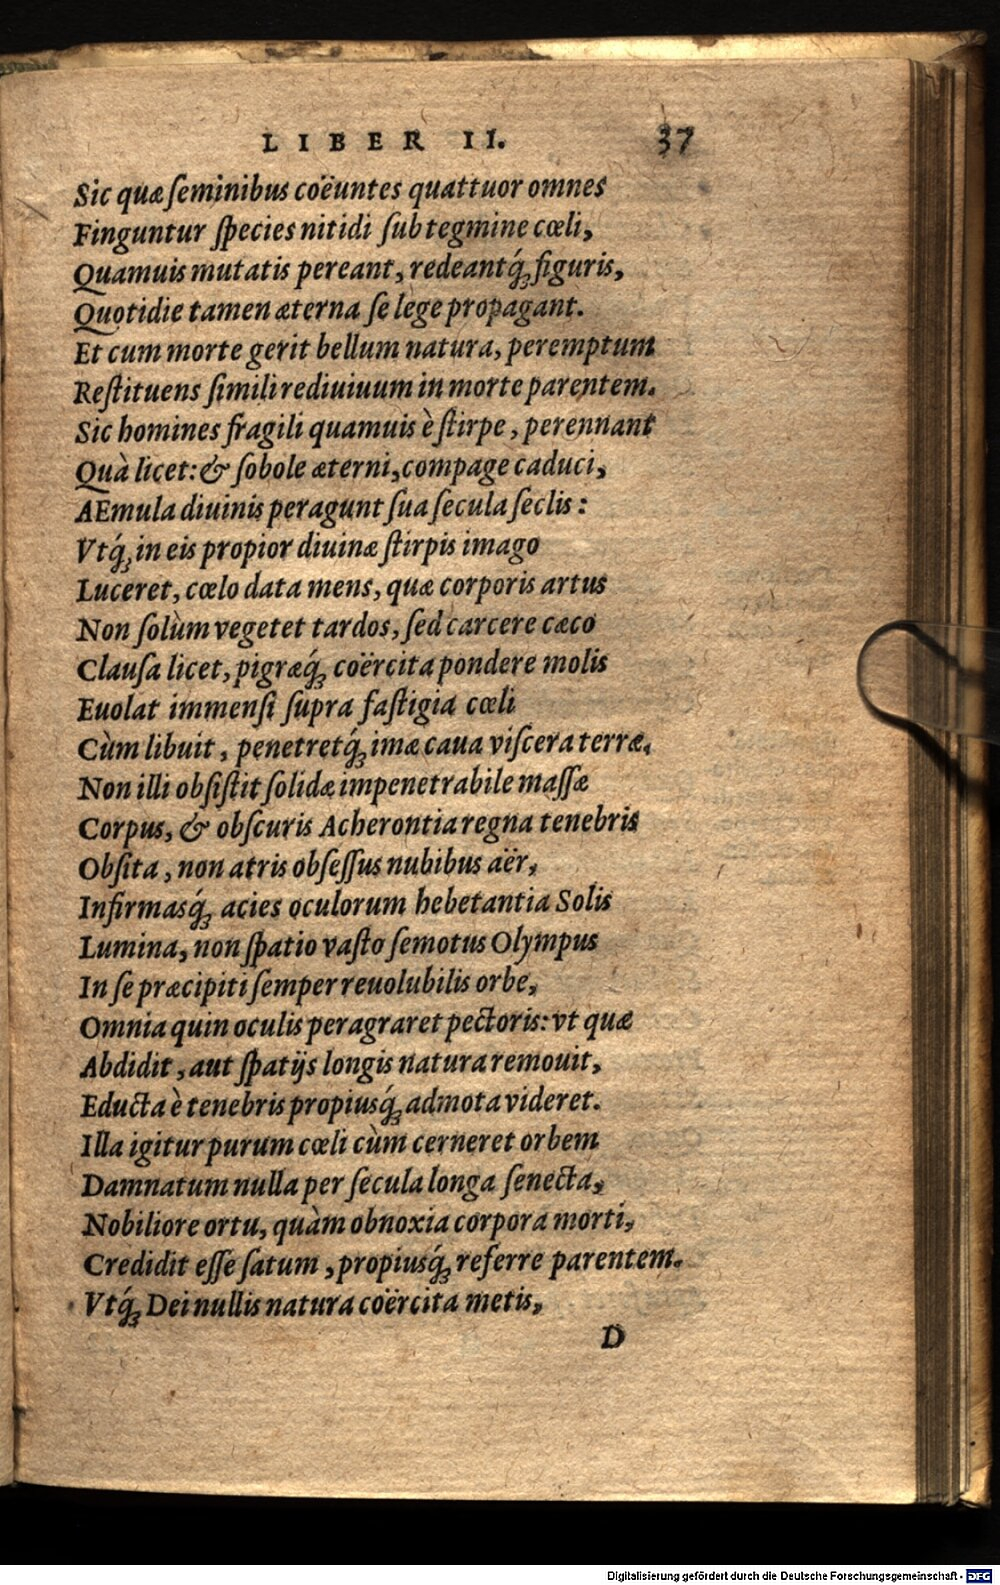 LIBER II. 37
Sic quæ ſeminibus coëuntes quattuor omnes
Finguntur ſpecies nitidi ſub tegmine cœli,
Quamuis mutatis pereant, redeantq́ꝫ figuris,
Quotidie tamen æterna ſe lege propagant.
Et cum morte gerit bellum natura, peremptum
Reſtituens ſimili rediuiuum in morte parentem.
Sic homines fragili quamuis è ſtirpe, perennant
Quà licet: & ſobole æterni, compage caduci,
AEmula diuinis peragunt ſua ſecula ſeclis:
Vtq́ꝫ in eis propior diuinæ ſtirpis imago
Luceret, cœlo data mens, quæ corporis artus
Non ſolùm vegetet tardos, ſed carcere cæco
Clauſa licet, pigræq́ꝫ coërcita pondere molis
Euolat immenſi ſupra faſtigia cœli
Cùm libuit, penetretq́ꝫ imæ caua viſcera terræ.
Non illi obſiſtit ſolidæ impenetrabile maſſæ
Corpus, & obſcuris Acherontia regna tenebris
Obſita, non atris obſeſſus nubibus aër,
Infirmasq́ꝫ acies oculorum hebetantia Solis
Lumina, non ſpatio vaſto ſemotus Olympus
In ſe præcipiti ſemper reuolubilis orbe,
Omnia quin oculis peragraret pectoris: vt quæ
Abdidit, aut ſpatijs longis natura remouit,
Educta è tenebris propiusq́ꝫ admota videret.
Illa igitur purum cœli cùm cerneret orbem
Damnatum nulla per ſecula longa ſenecta,
Nobiliore ortu, quàm obnoxia corpora morti,
Credidit eſſe ſatum, propiusq́ꝫ referre parentem.
Vtq́ꝫ Dei nullis natura coërcita metis,
D
Digitalisierung gefördert durch die Deutsche Forschungsgemeinschaft - DFG